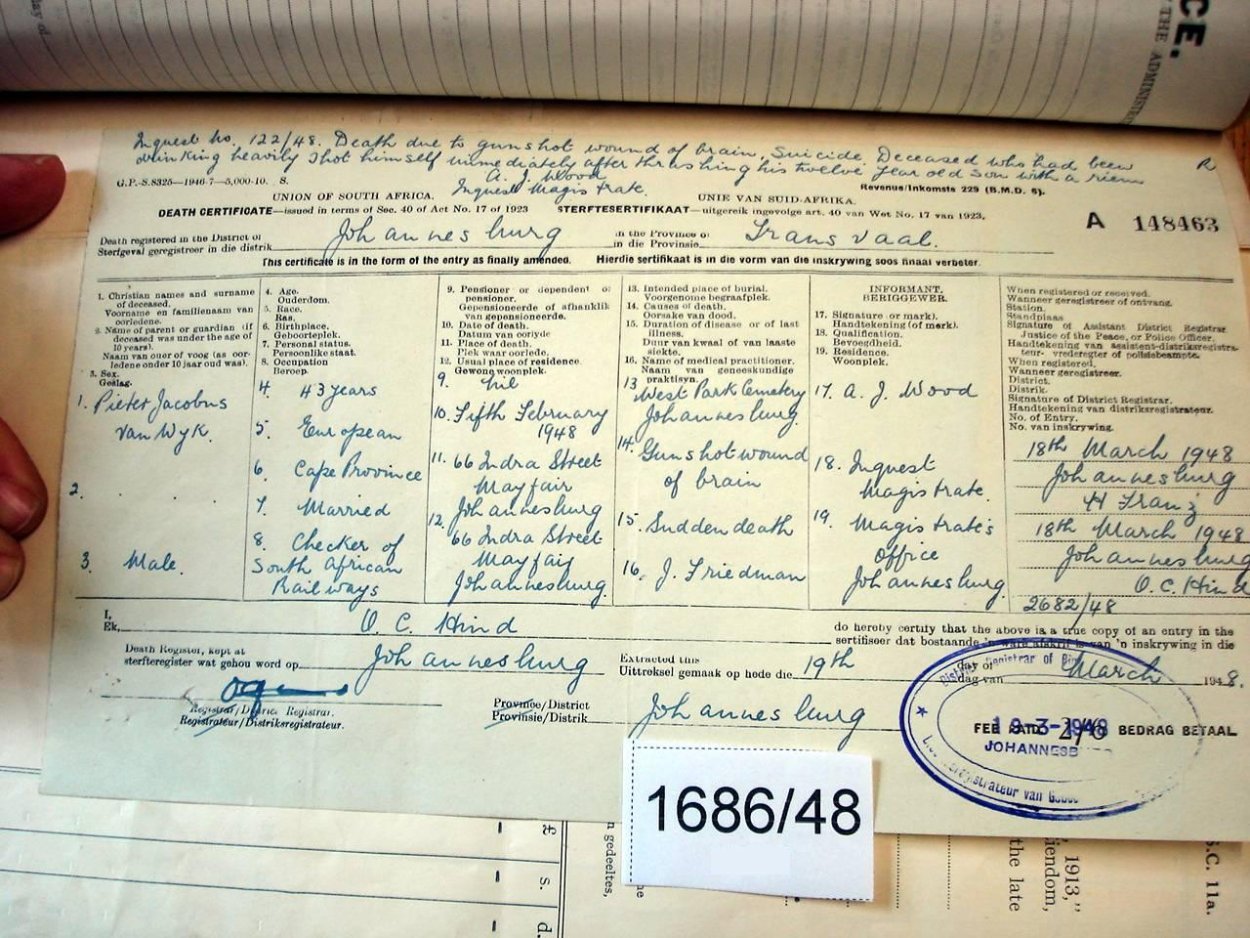 CE.
THE ADMINIST
day of
Inquest No. 122/48. Death due to gunshot wound of brain, Suicide. Deceased who had been
drinking heavily shot himself immediately after thrashing his twelve year old son with a riem
A. J. Wood
Inquest Magistrate.
R
G.P.-S.8325—1946-7—5,000-10. S.
Revenue/Inkomste 229 (B.M.D. 6).
UNION OF SOUTH AFRICA.
UNIE VAN SUID-AFRIKA.
DEATH CERTIFICATE—issued in terms of Sec. 40 of Act No. 17 of 1923
STERFTESERTIFIKAAT—uitgereik ingevolge art. 40 van Wet No. 17 van 1923.
A 148463
Death registered in the District of
Sterfgeval geregistreer in die distrik
Johannesburg
in the Province of
in die Provinsie
Transvaal.
This certificate is in the form of the entry as finally amended.
Hierdie sertifikaat is in die vorm van die inskrywing soos finaal verbeter.
1. Christian names and surname
of deceased.
Voorname en familienaam van
oorledene.
2. Name of parent or guardian (if
deceased was under the age of
10 years).
Naam van ouer of voog (as oor-
ledene onder 10 jaar oud was).
3. Sex.
Geslag.
1. Pieter Jacobus
van Wyk.
2.
3. Male.
4. Age.
Ouderdom.
5. Race.
Ras.
6. Birthplace.
Geboorteplek.
7. Personal status.
Persoonlike staat.
8. Occupation
Beroep.
4. 43 years
5. European
6. Cape Province
7. Married
8. Checker of
South African
Railways
9. Pensioner or dependent of
pensioner.
Gepensioneerde of afhanklik
van gepensioneerde.
10. Date of death.
Datum van oorlyde
11. Place of death.
Plek waar oorlede.
12. Usual place of residence.
Gewone woonplek.
9. Nil
10. Fifth February
1948
11. 66 Indra Street
Mayfair
Johannesburg
12. 66 Indra Street
Mayfair
Johannesburg.
13. Intended place of burial.
Voorgenome begraafplek.
14. Causes of death.
Oorsake van dood.
15. Duration of disease or of last
illness.
Duur van kwaal of van laaste
siekte.
16. Name of medical practitioner.
Naam van geneeskundige
praktisyn.
13. West Park Cemetery
Johannesburg.
14. Gunshot wound
of brain
15. Sudden death
16. J. Friedman
INFORMANT.
BERIGGEWER.
17. Signature or mark).
Handtekening (of merk).
18. Qualification.
Bevoegdheid.
19. Residence.
Woonplek.
17. A. J. Wood
18. Inquest
Magistrate.
19. Magistrate's
Office
Johannesburg.
When registered or received.
Wanneer geregistreer of ontvang.
Station.
Standplaas
Signature of Assistant District Registrar
Justice of the Peace, or Police Officer.
Handtekening van assistent-distriksregistra-
teur- vrederegter of polisiebeampte.
When registered.
Wanneer geregistreer.
District.
Distrik.
Signature of District Registrar.
Handtekening van distriksregistrateur.
No. of Entry.
No. van inskrywing.
18th March 1948
Johannesburg
H Franz
18th March 1948
Johannesburg
O. C. Hind
2682/48
I,
Ek,
O. C. Hind
do hereby certify that the above is a true copy of an entry in the
sertifiseer dat bostaande 'n ware afskrif is van 'n inskrywing in die
Death Register, kept at
sterfteregister wat gehou word op
Johannesburg
Extracted this
Uittreksel gemaak op hede die
19th
day of
dag van
March
1948.
Registrar/District Registrar.
Registrateur/Distriksregistrateur.
Province/District
Provinsie/Distrik
Johannesburg
FEE PAID 2/6 BEDRAG BETAAL
District Registrar of
19-3-1948
JOHANNESB
registrateur van
1686/48
£ s. d.
n gedeeltes,
ne
1913,"
iendom,
the late
S.C. 11a.